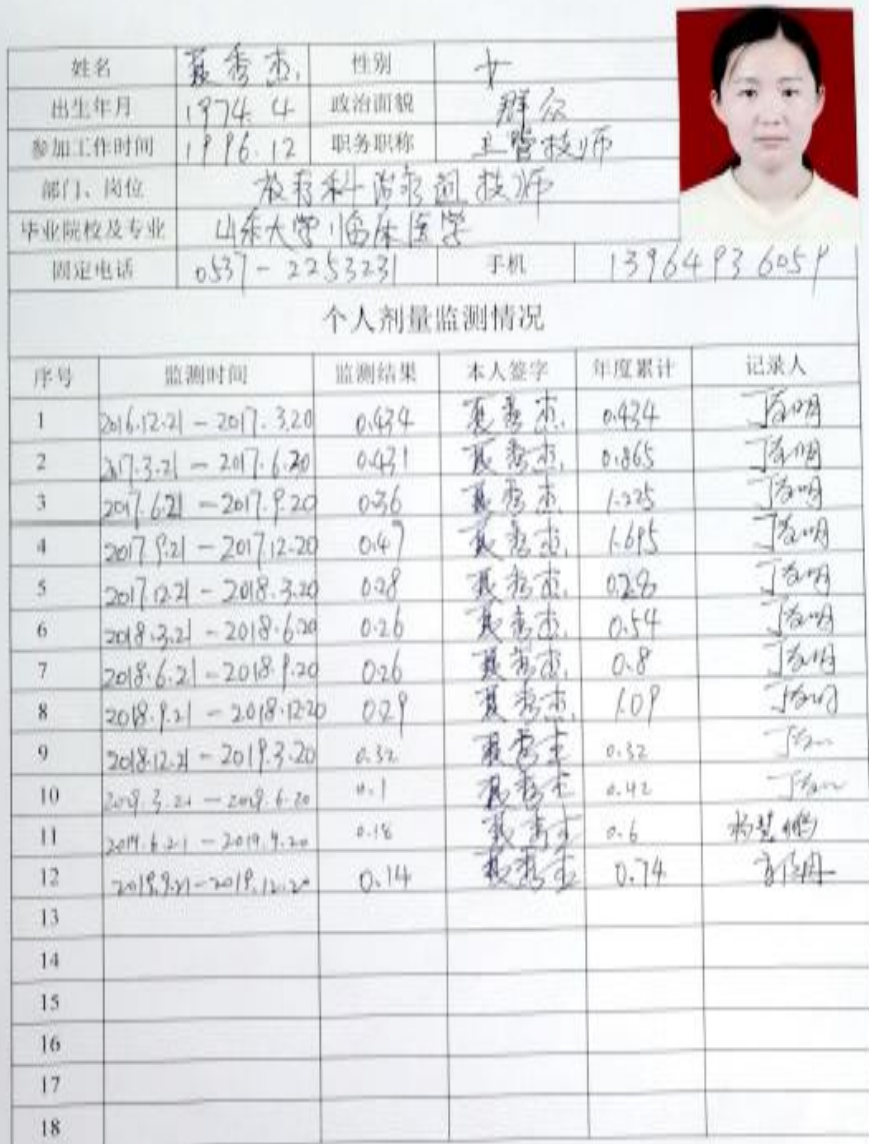 姓名 夏秀杰 性别 女
出生年月 1974.4 政治面貌 群众
参加工作时间 1996.12 职务职称 主管技师
部门、岗位 放疗科 治疗组技师
毕业院校及专业 山东大学 临床医学
固定电话 0537-2253231 手机 13964936059
个人剂量监测情况
序号 监测时间 监测结果 本人签字 年度累计 记录人
1 2016.12.21-2017.3.20 0.434 夏秀杰 0.434
2 2017.3.21-2017.6.20 0.431 夏秀杰 0.865
3 2017.6.21-2017.9.20 0.36 夏秀杰 1.225
4 2017.9.21-2017.12.20 0.47 夏秀杰 1.695
5 2017.12.21-2018.3.20 0.28 夏秀杰 0.28
6 2018.3.21-2018.6.20 0.26 夏秀杰 0.54
7 2018.6.21-2018.9.20 0.26 夏秀杰 0.8
8 2018.9.21-2018.12.20 0.29 夏秀杰 1.09
9 2018.12.21-2019.3.20 0.32 夏秀杰 0.32
10 2019.3.21-2019.6.20 0.1 夏秀杰 0.42
11 2019.6.21-2019.9.20 0.18 夏秀杰 0.6
12 2019.9.21-2019.12.20 0.14 夏秀杰 0.74
13
14
15
16
17
18